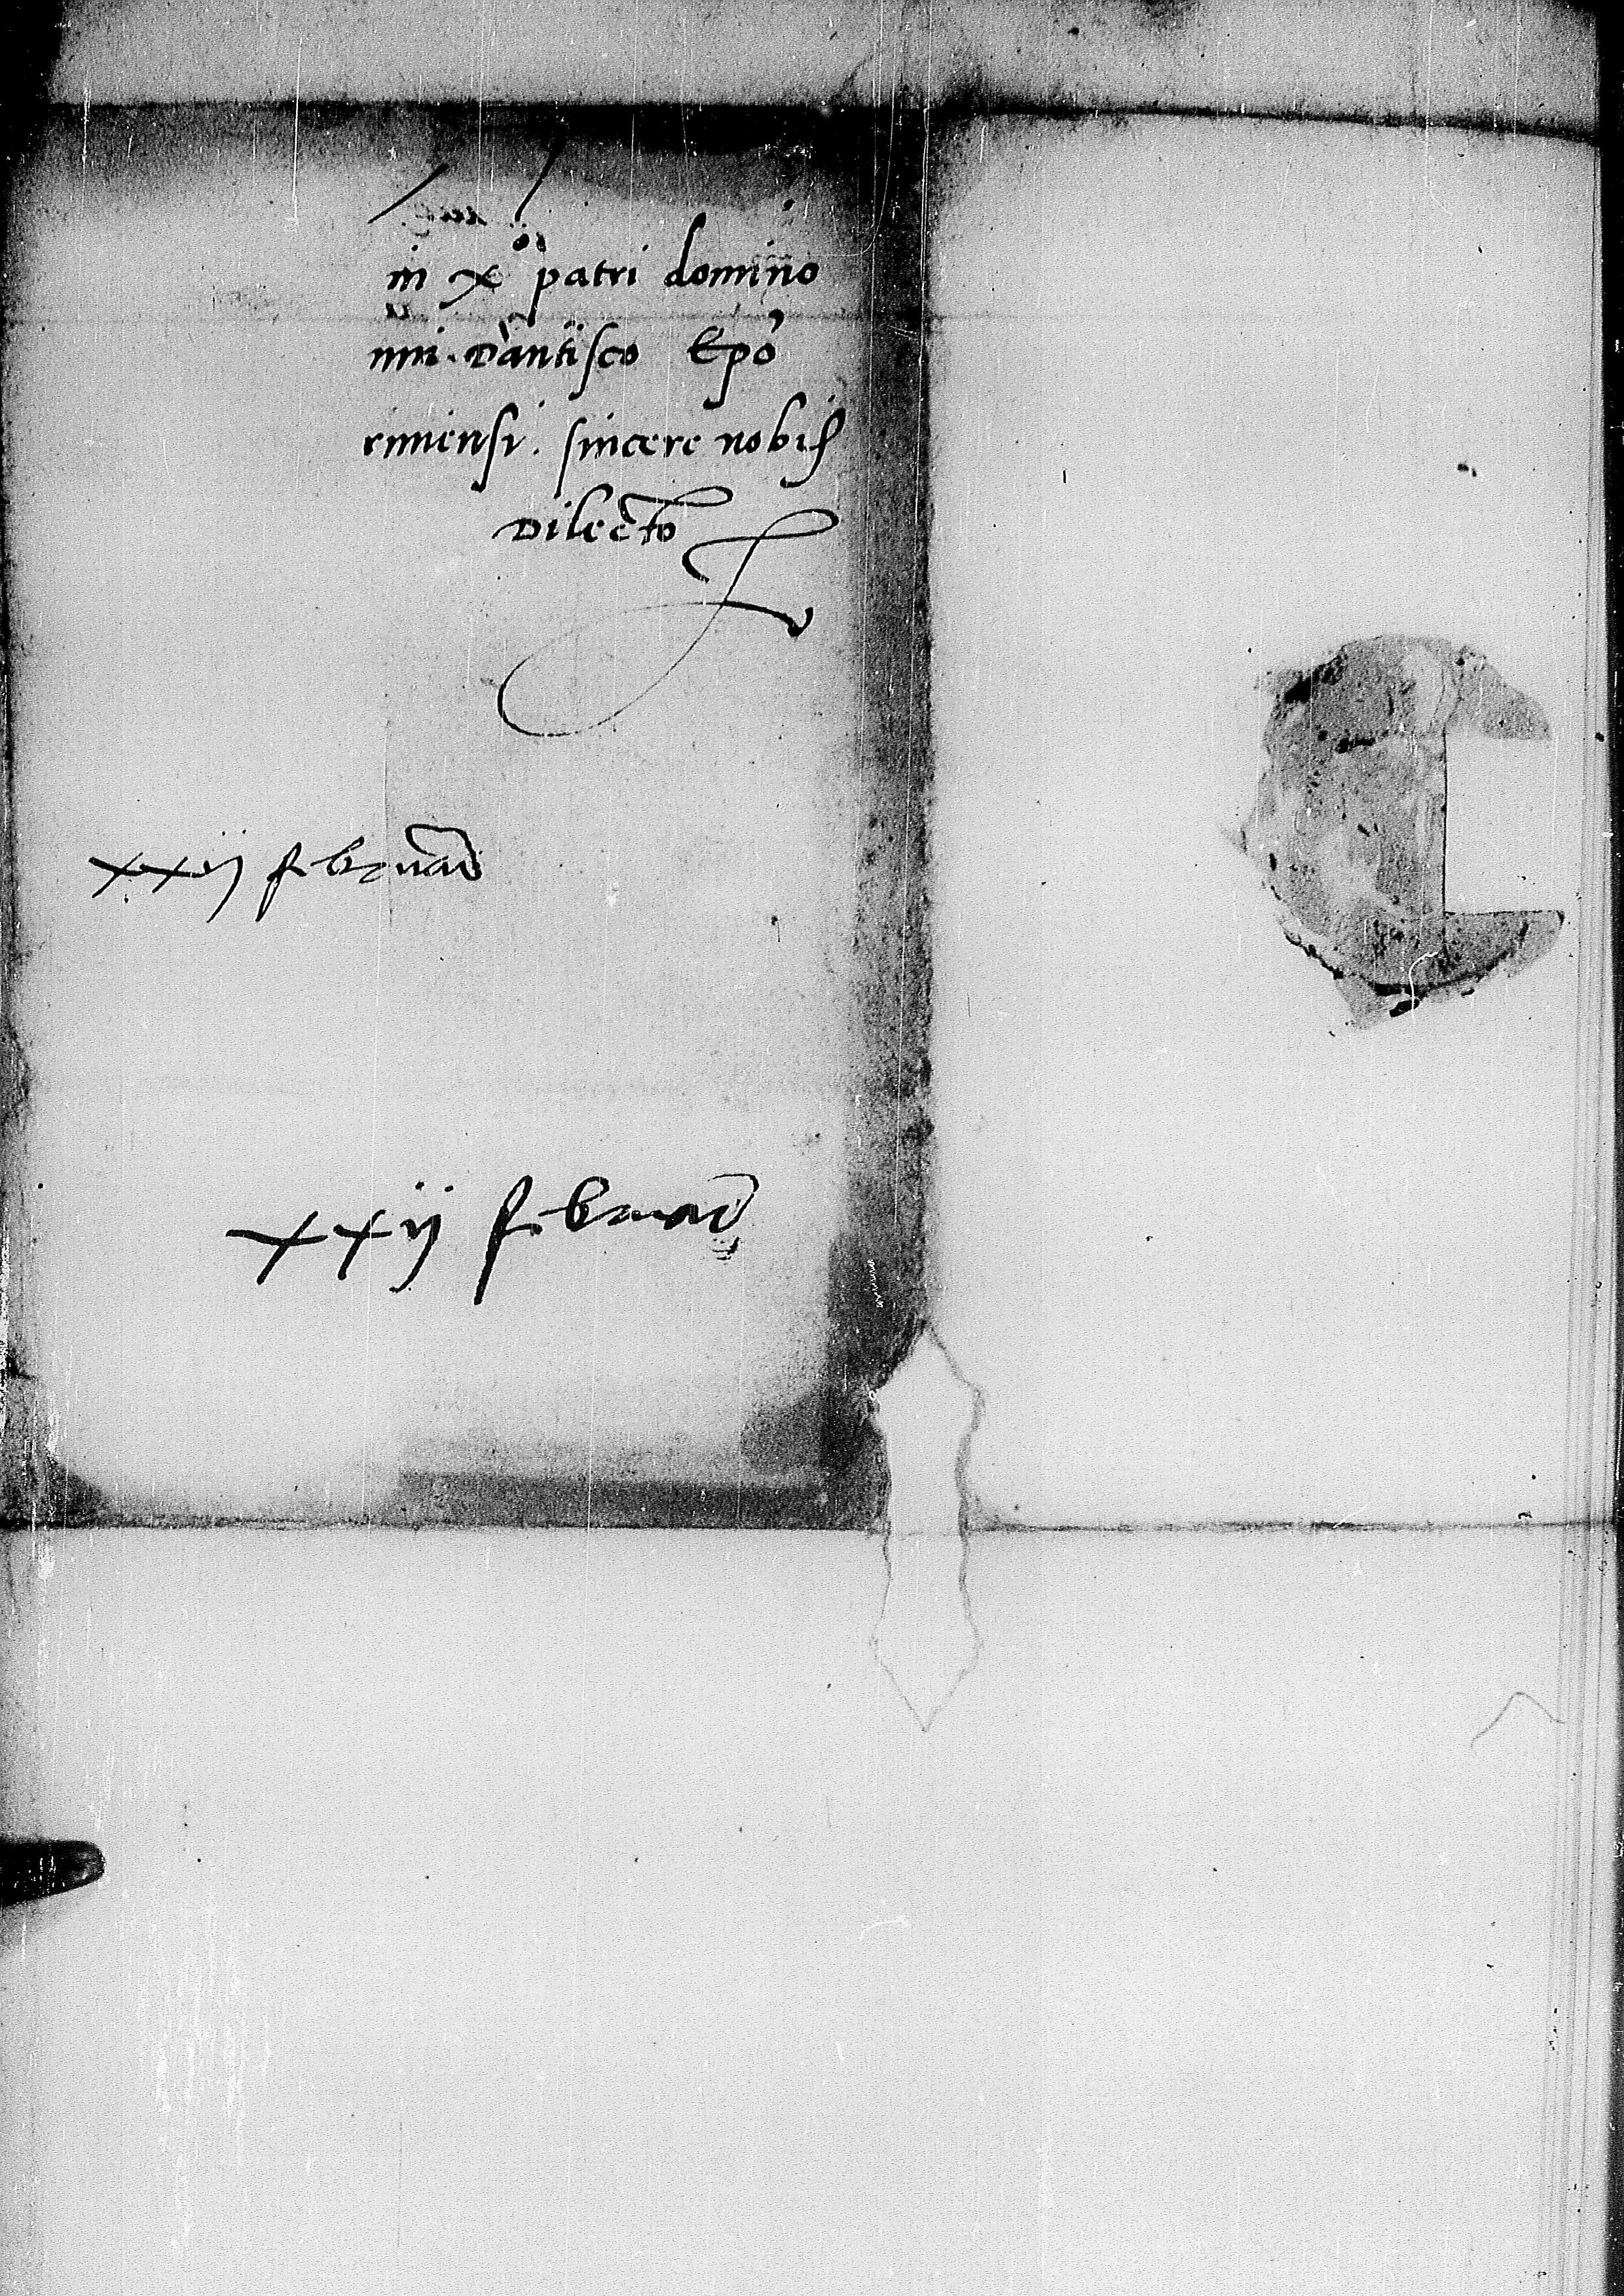 in Xo patri domino
nni. Dantisco Epo
rimiensi. sincere nobis
Dilecto
xxij februar
xxij februar